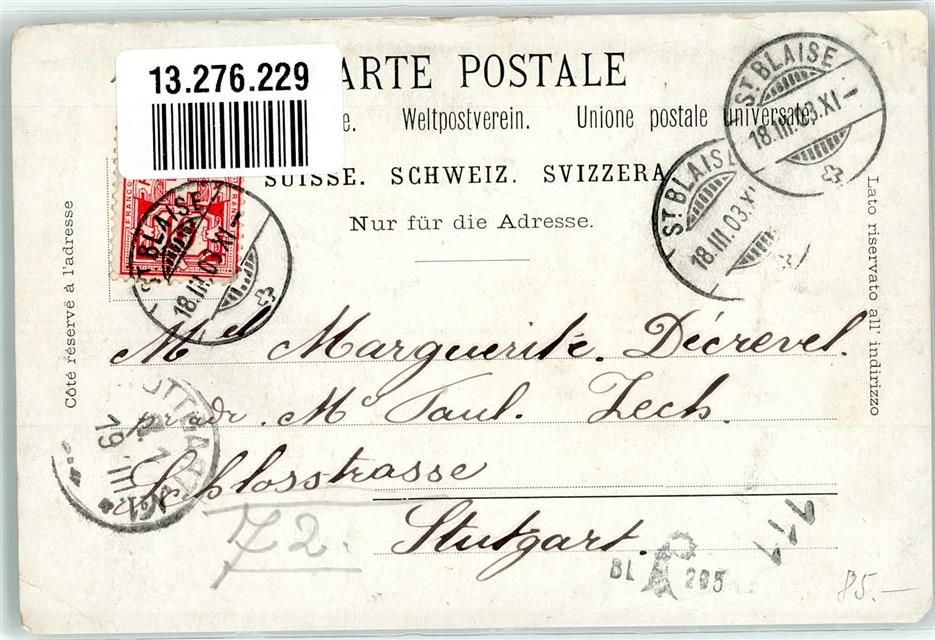 13.276.229
ARTE POSTALE
e. Weltpostverein. Unione postale universale.
SUISSE. SCHWEIZ. SVIZZERA
Nur für die Adresse.
Côté réservé à l'adresse
Lato riservato all' indirizzo
FRANCO
ST BLAISE
18.III.03.XI
ST BLAISE
18.III.03.XI
ST BLAISE
18.III.03.XI—
Mel Marguerite. Décrevel.
adr. Mr Paul. Zech.
Schlosstrasse
72.
Stuttgart.
STUTTGART
19 III
111
BL 295
85.-